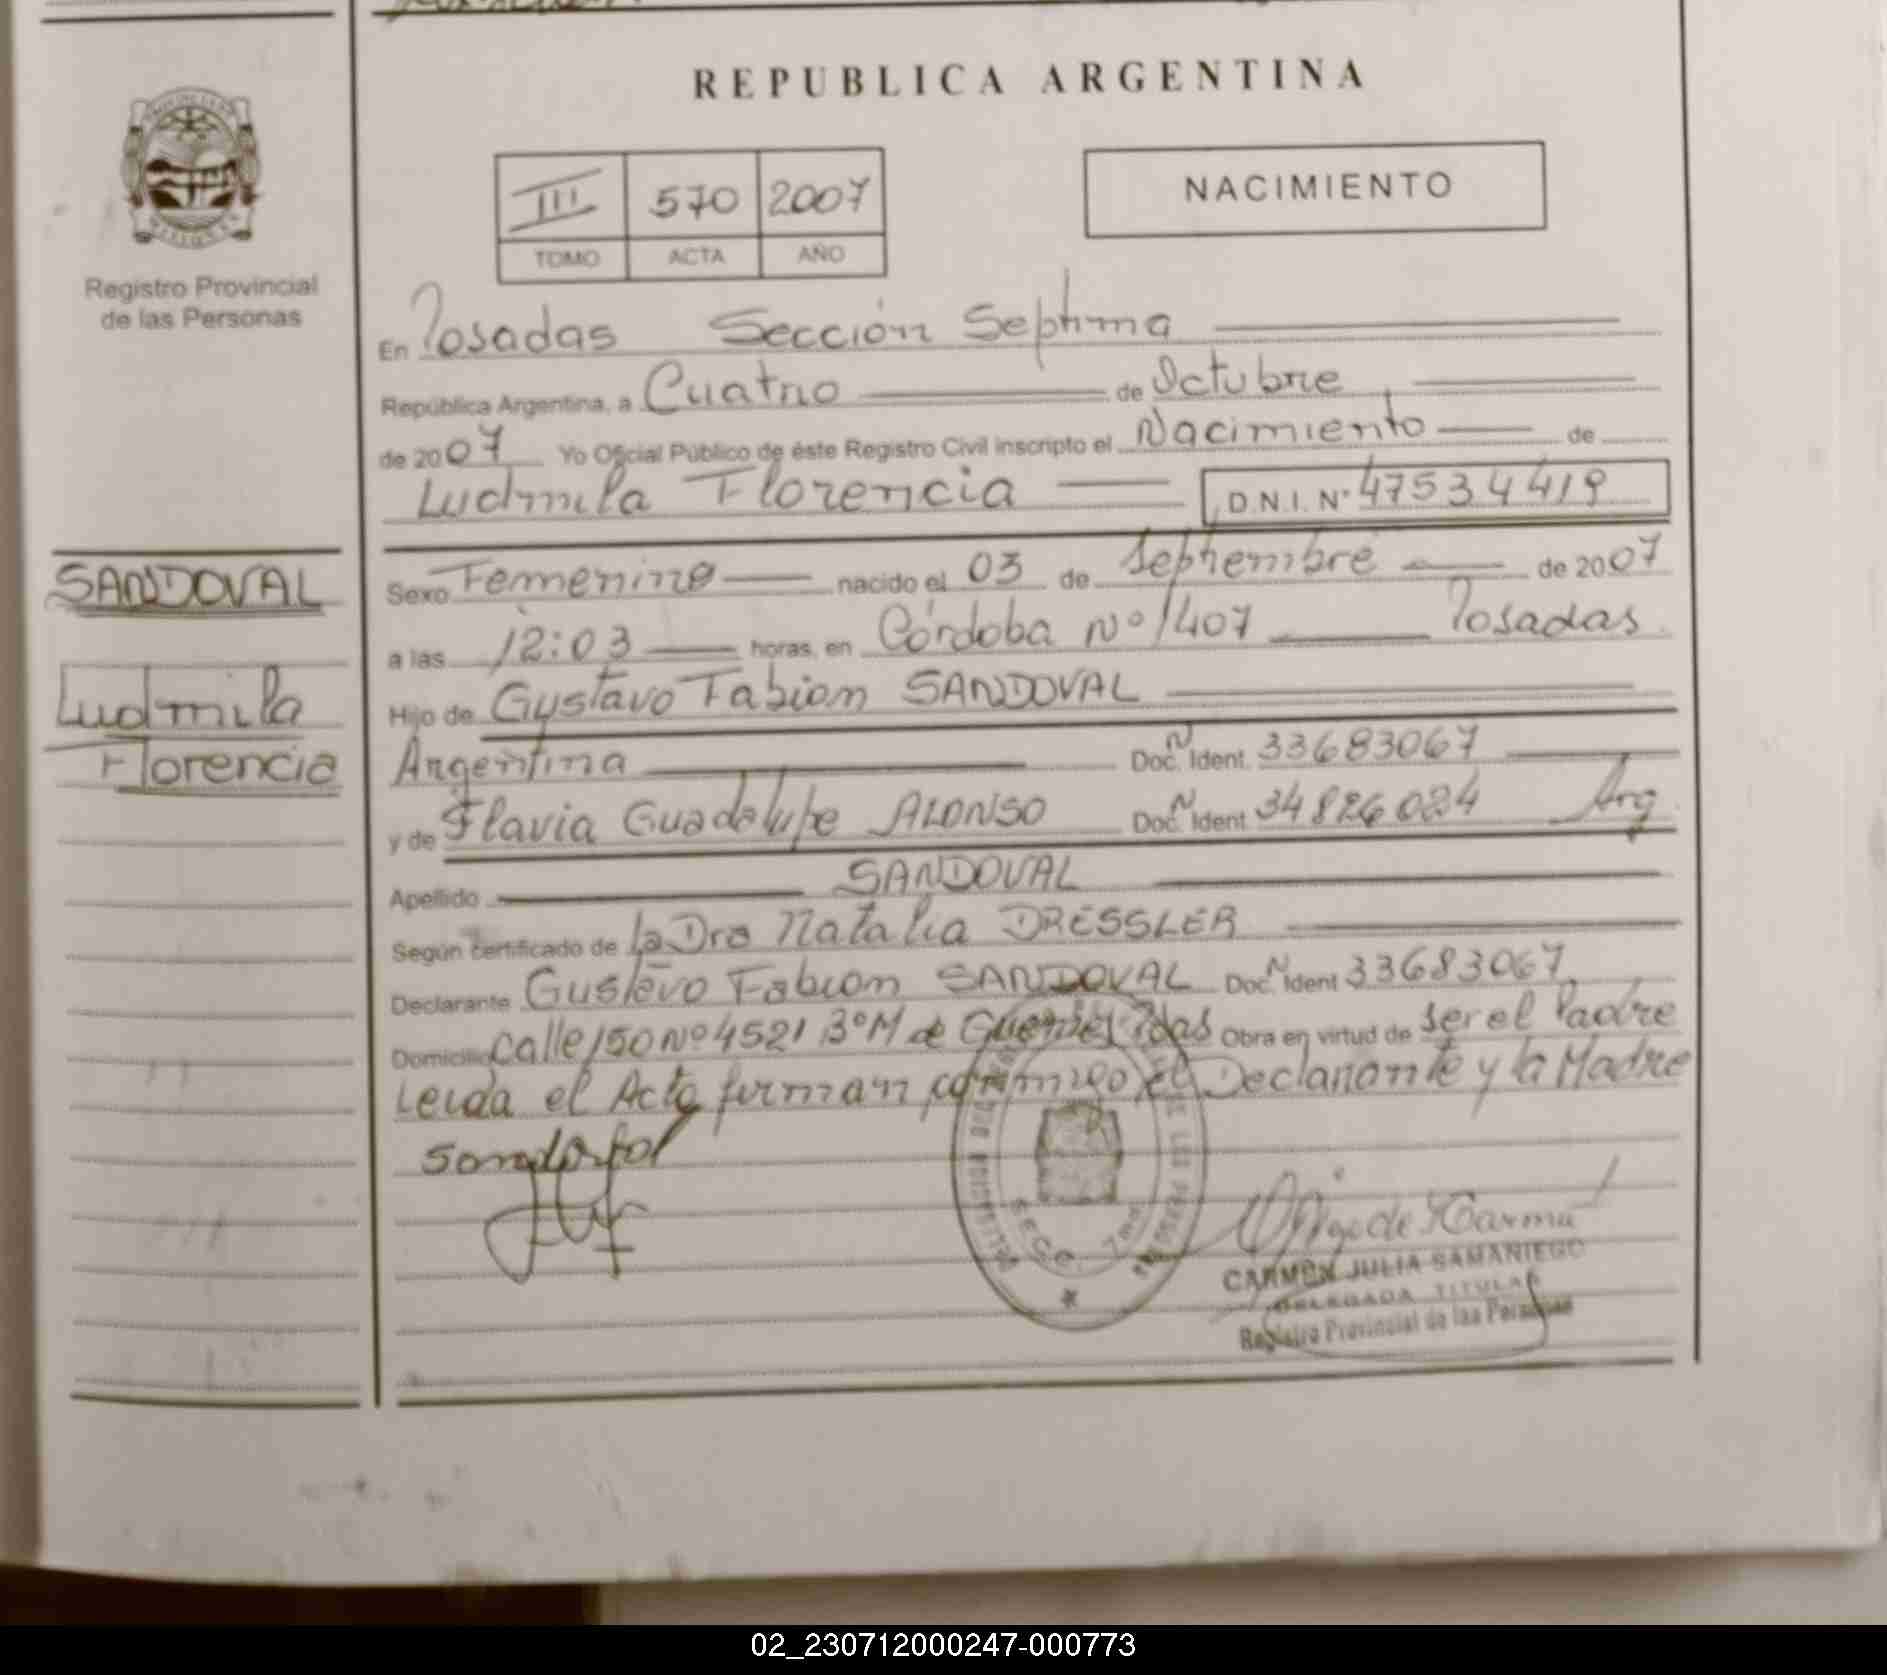 REPUBLICA ARGENTINA
III 570 2007
TOMO ACTA AÑO
NACIMIENTO
Registro Provincial
de las Personas
SANDOVAL
Ludmila
Florencia
En Posadas Sección Septima
República Argentina, a Cuatro de Octubre
de 2007 Yo Oficial Público de éste Registro Civil inscripto el Nacimiento de
Ludmila Florencia D.N.I. N° 47534419
Sexo Femenino nacido el 03 de Septiembre de 2007
a las 12:03 horas, en Córdoba Nº 1407 Posadas
Hijo de Gustavo Fabian SANDOVAL
Argentina Doc. N Ident. 33683067
y de Flavia Guadalupe ALONSO Doc. N Ident. 34826024 Arg
Apellido SANDOVAL
Según certificado de la Dra Natalia DRESSLER
Declarante Gustavo Fabian SANDOVAL Doc. N Ident 33683067
Domicilio Calle 150 Nº 4521 Bº M de Guemes Pdas Obra en virtud de ser el Padre
Leida el Acta firman conmigo el Declarante y la Madre
SECC. 7ma
CARMEN JULIA SAMANIEGO
DELEGADA TITULAR
Registro Provincial de las Personas
02_230712000247-000773